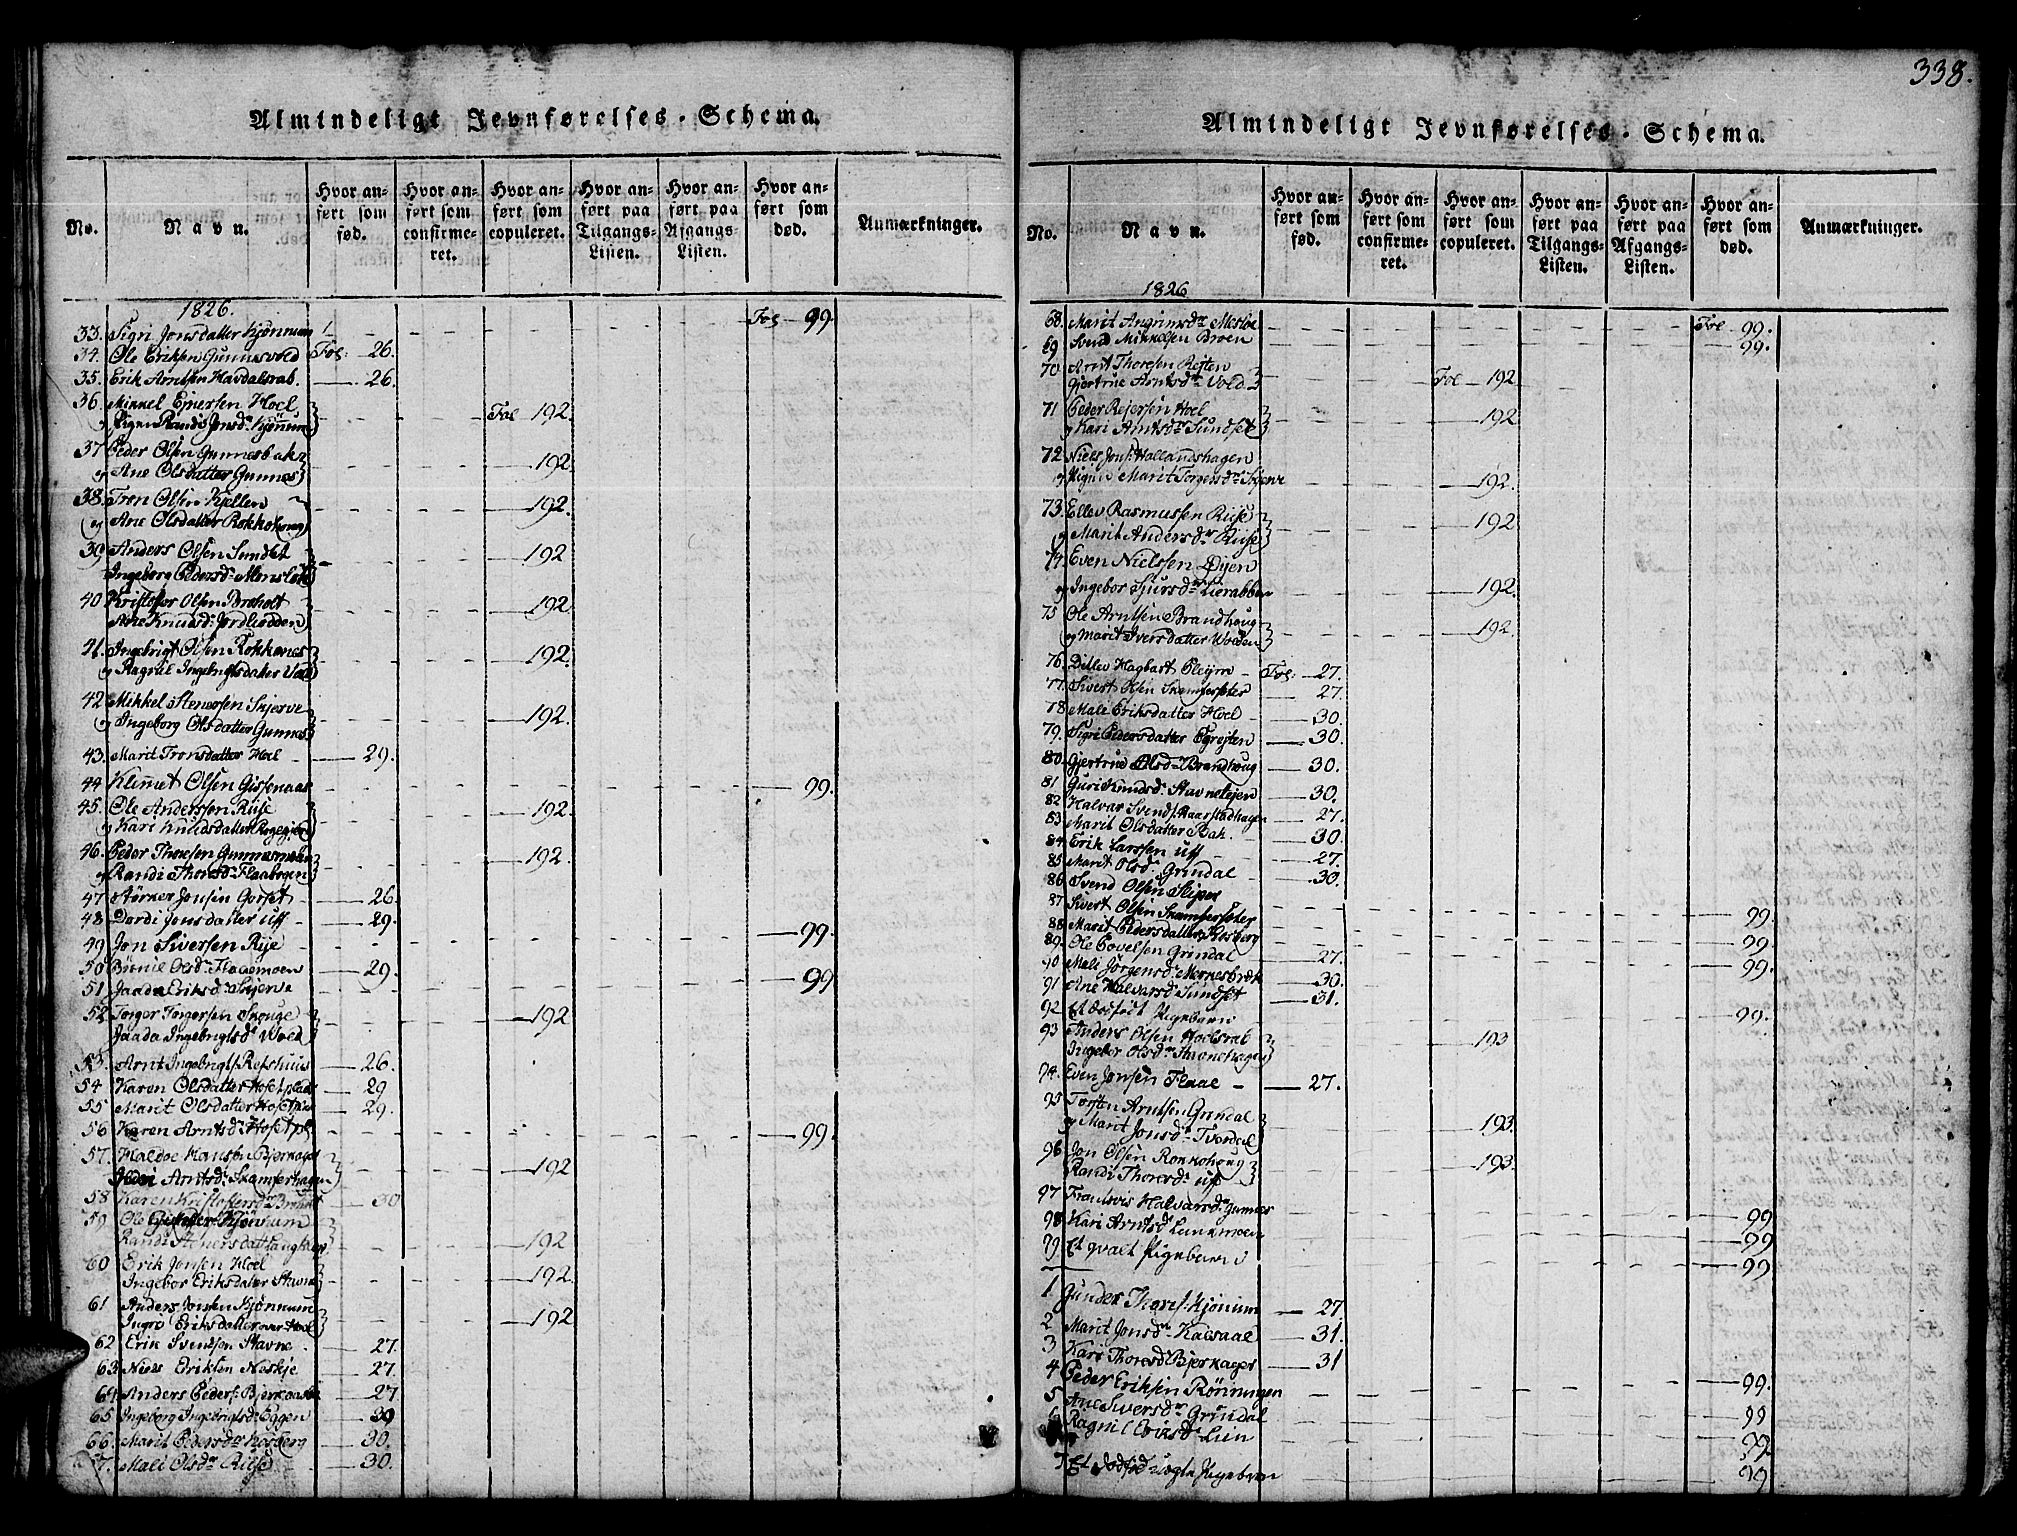 338.
Almindeligt Jevnførelses-Schema.
No.
Navn.
Hvor anført som fød.
Hvor anført som confirmeret.
Hvor anført som copuleret.
Hvor anført paa Tilgangs-Listen.
Hvor anført paa Afgangs-Listen.
Hvor anført som død.
Anmærkninger.
1826.
33. Sigri Jonsdatter Kjønnum Fol 99.
34. Ole Eriksen Gunnesvold Fol: 26.
35. Erik Arntsen Havdalsrab. 26.
36. Mikkel Ejnersen Hoel
Pigen Randi Jonsd: Kjønum Fol 192.
37 Peder Olsen Gunnesbak
og Ane Olsdatter Gunnes 192
38. Tron Olsen Kjellen
og Ane Olsdatter Rokkohoug 192.
39. Anders Olsen Sundset
Ingeborg Pedersd: 192
40 Kristofor Olsen Broholt
Ane Knudsd: Jordlodden 192
41. Ingebrigt Olsen Rokkones
og Ragnil Ingebrigtsdatter Vold 192.
42 Mikkel Stenersen Skjerve
og Ingeborg Olsdatter Gunnes 192.
43. Marit Tronsdatter Hoel 29.
44 Klemet Olsen Gissenaas 99.
45. Ole Anderssen Riise
og Kari Knudsdatter 192
46. Peder Thoresen
og Randi Thoresd: Flaahagen 192
47 Størker Jonsen Gorset 26.
48 Dordi Jonsdatter Uff 29.
49 Jon Siversen Rise 99.
50 Børnil Olsd: Flaaemoen 29.
51 Jaada Eriksd: Skjerve 99
52 Torger Torgersen Skouge
Jaada Ingebrigtsd: Wold 192
53. Arnt Ingebrigts: Refshuus 26.
54 Karen Olsdatter Hosetplads 29
55 Marit Olsdatter 29.
56 Karen Arntsd: Hoset pl: 99
57. Haldoe Hansen Bjerkager
Arntsd: Skamferhagen 192
58 Karen Kristofersd: Broholt 30
59 Ole Kjønnum
Randi Stenersdat 192
60 Erik Jonsen Hoel
Ingebor Eriksdatter Stavne 192.
61 Anders Jonsen Kjønnum
Ingri Eriksdatter over Hoel 192
62 Erik Svendsen Stavne. 27.
63 Niels Eriksen Neskje 27.
64 Anders Peders: 27
65 Ingeborg Ingebrigtsd: Eggen 30
66. Marit Pedersd: Kosberg 30.
67. Mali Olsd: Riise 30.
Almindeligt Jevnførelses-Schema.
No.
Navn.
Hvor anført som fød.
Hvor anført som confirmeret.
Hvor anført som copuleret.
Hvor anført paa Tilgangs-Listen.
Hvor anført paa Afgangs-Listen.
Hvor anført som død.
Anmærkninger.
1826
68. Marit Angrimsd: Mesloe Fol 99.
69 Svend Mikkelsen Broen 99.
70 Arnt Thoresen Rejten
Gjertrue Arntsd: Vold Fol 192
71 Peder Rejersen Hoel
og Kari Arntsd: Sundset 192
72. Niels Jons: Hollandshagen
og Pigen Marit Torgersd: Skjerve 192.
73. Ellev Rasmussen Riise
og Marit Andersd: Riise 192
74 Even Nielssen Øyen
og Ingebor Sjursd: Lierabben 192.
75 Ole Arntsen Brandhoug
og Marit Iversdatter Volden 192.
76. Ditlev Hagbart Fol: 27.
77. Sivert Olsen Skamferseter 27.
78 Mali Eriksdatter Hoel 30.
79. Sigri Pedersdatter 30.
80. Gjertrue Olsd: Brandhoug 30.
81 Guri Knudsd: Stavnelejen 30.
82 Halvar Svends: Kaarstadhagen 27.
83 Marit Olsdatter Bak 30.
84 Erik Larssen Uff 27.
85 Marit Olsd: Grindal 30.
86 Svend Olsen 99
87 Sivert Olsen Skamferseter 99
88 Marit Pedersdatter Kosberg 99
89. Ole Povelsen Grindal 27.
90 Mali Jørgensd: 30.
91 Ane Halvarsd: Sundset 31.
92 Et dødfødt Pigebarn 99.
93 Anders Olsen Hoelsrab
Ingebor Olsd: Stavnehagen 193
94. Even Jonsen Flaae 27.
95 Torsten Arntsen Grindal
og Marit Jonsd: 193.
96 Jon Olsen Rokkohoug
Randi Thoresd: Uff 193.
97 Halvarsd: Gunnes 99
98 Kari Arntsd: Lunkmoen 99
79 Et qvalt Pigebarn 99
1 Gunder Thores: Kjønum 27
2 Marit Jonsd: Kaesaae 31.
3 Kari Thoresd: Bjerkager 31
4 Peder Eriksen Rønningen 99.
5 Ane Siversd: Grindal 99
6 Ragnil Eriksd: Lien 99.
7 Et Pigebarn 99